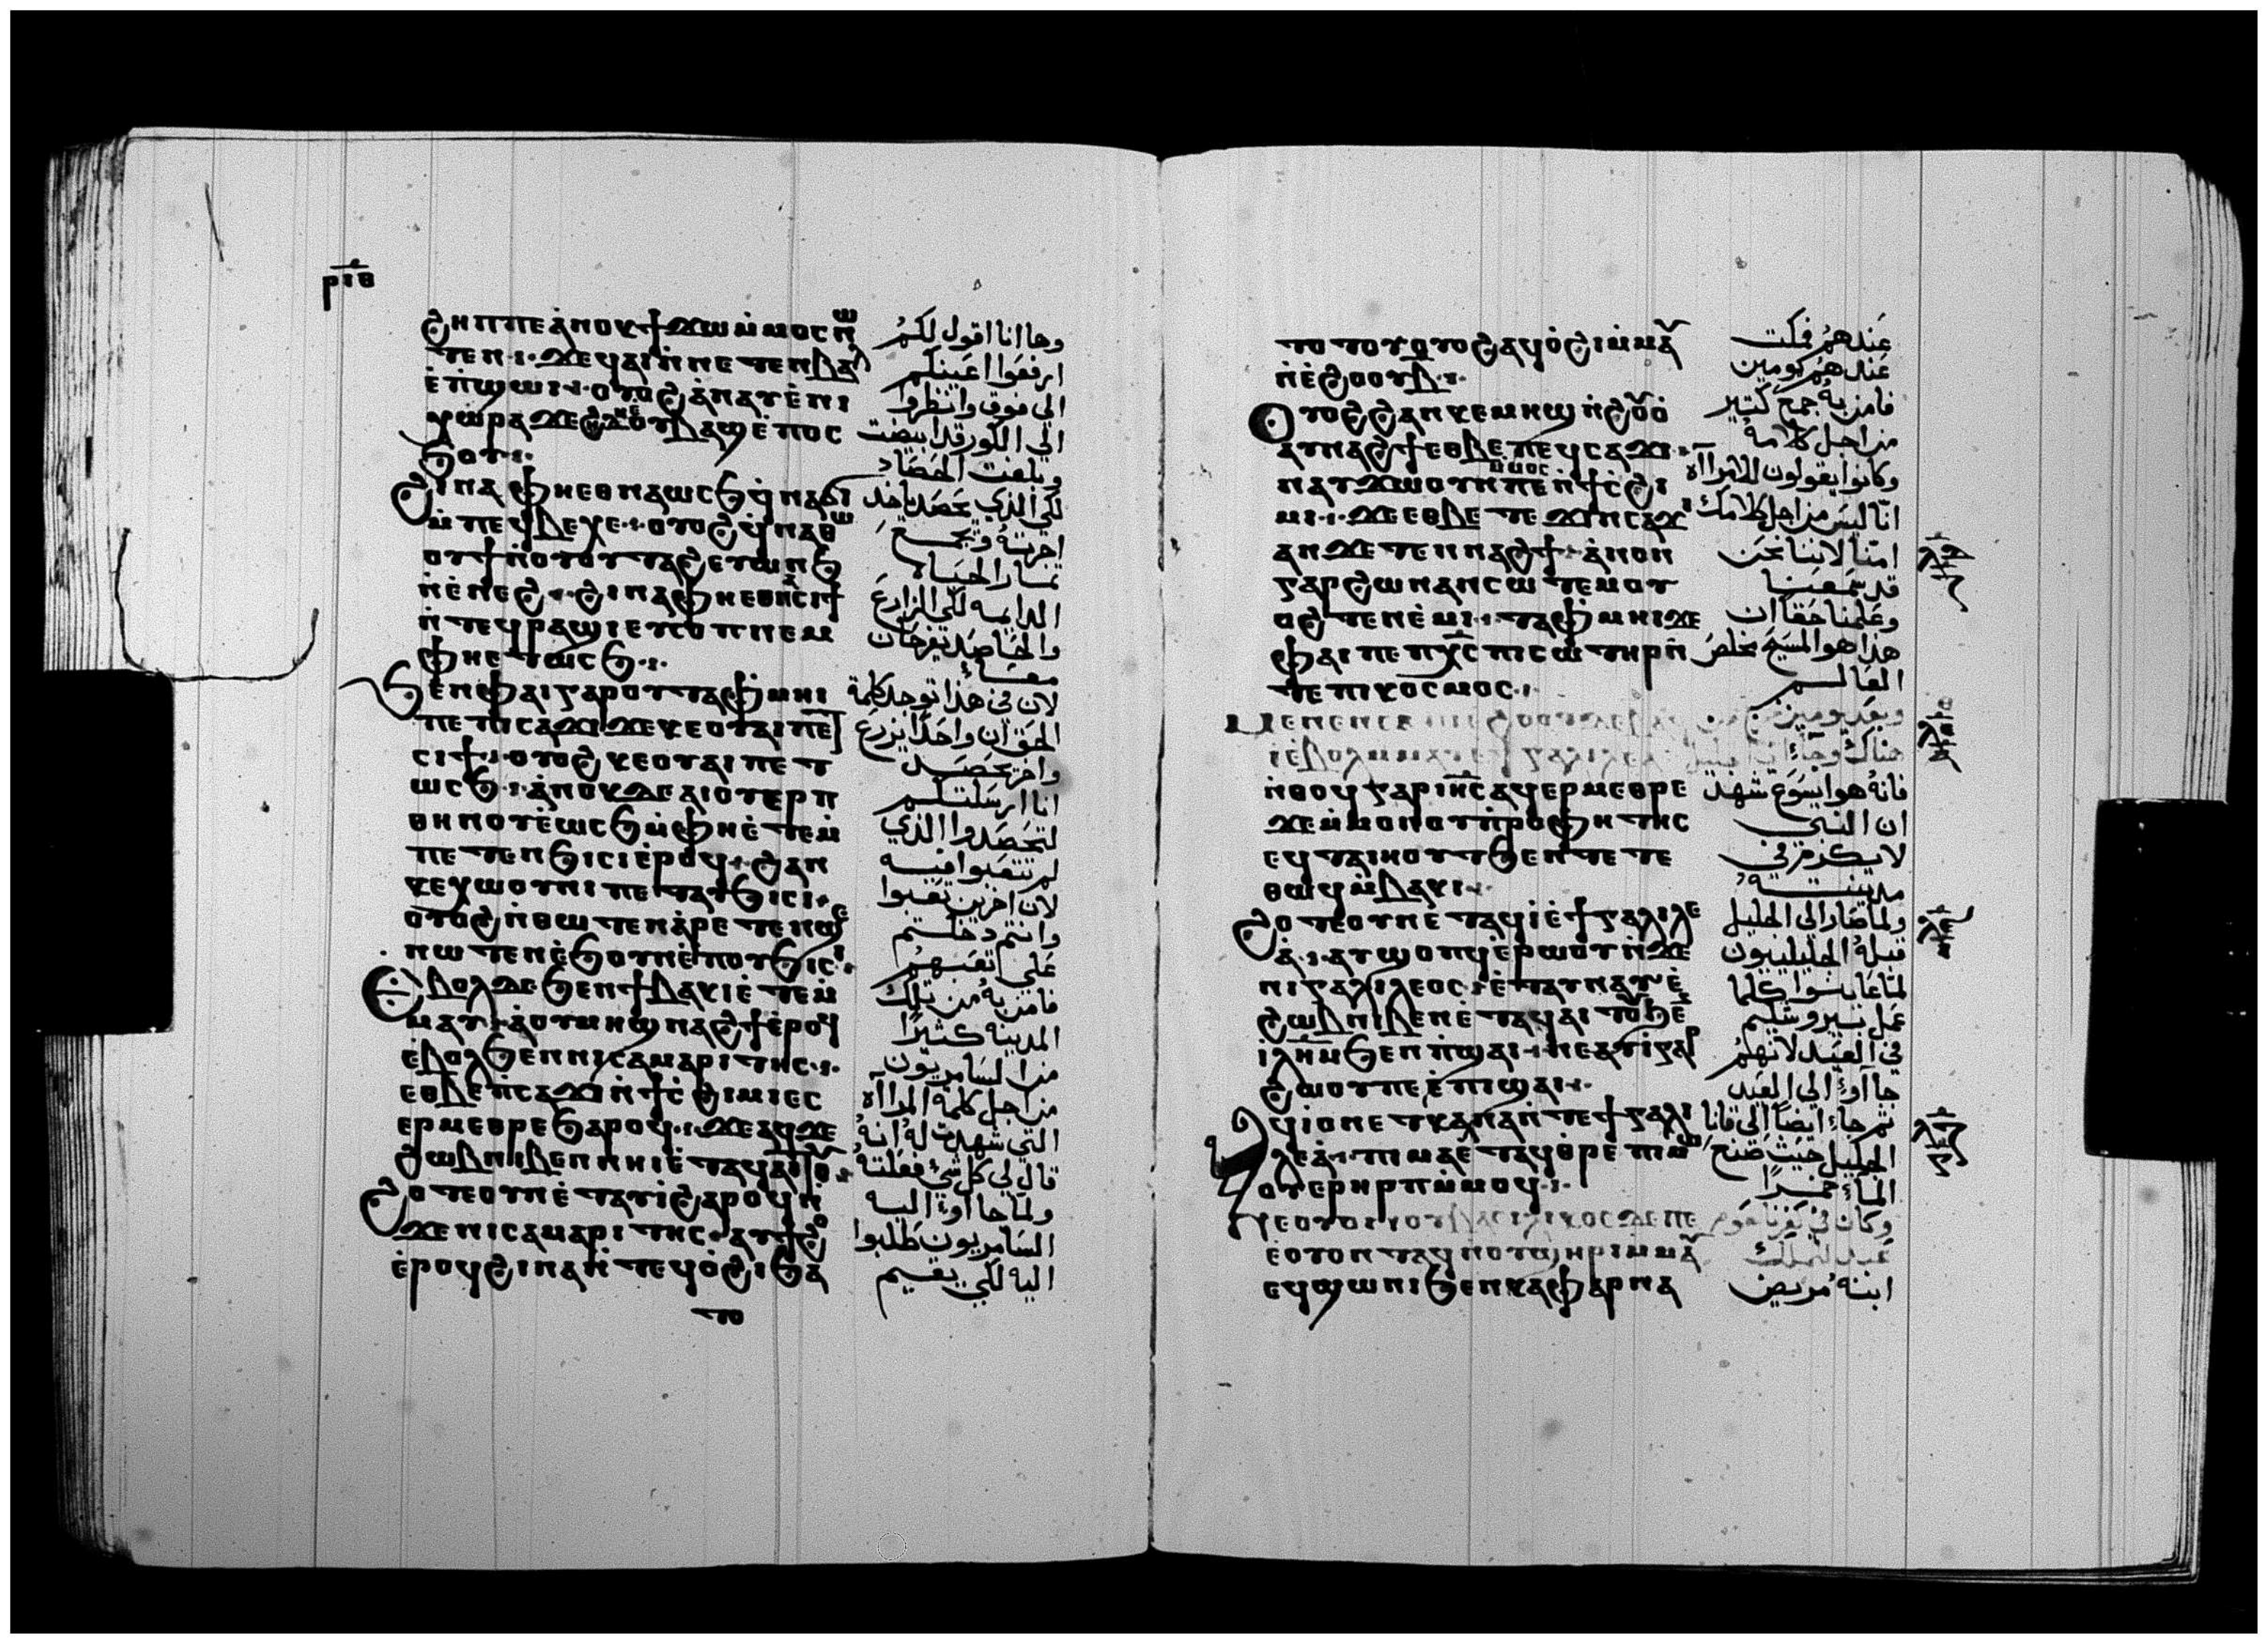 ⲣⲓⲑ
ϩⲏⲡⲡⲉ ⲁⲛⲟⲕ ϯϫⲱ ⲙⲙⲟⲥ ⲛⲱ
ⲧⲉⲛ ϫⲉ ϥⲁⲓ ⲛⲛⲉⲧⲉⲛⲃⲁⲗ
ⲉⲡϣⲱⲓ ⲟⲩⲟϩ ⲁⲛⲁⲩ ⲉⲛⲓ
ⲭⲱⲣⲁ ϫⲉ
ϧⲟⲩ
ϩⲓⲛⲁ ⲫⲏ ⲉⲑⲛⲁⲱⲥϧ ϥⲛⲁϭⲓ
ⲙⲡⲉϥⲃⲉⲭⲉ ⲟⲩⲟϩ ϥⲛⲁⲑⲱ
ⲟⲩϯ ⲛⲟⲩⲟⲩⲧⲁϩ ⲉⲩⲱⲛϧ
ⲛⲉⲛⲉϩ ϩⲓⲛⲁ ⲫⲏ ⲉⲑⲛⲁⲥⲓϯ
ⲛⲧⲉϥⲣⲁϣⲓ ⲉⲩⲥⲟⲡ ⲛⲉⲙ
ⲫⲏ ⲉⲧⲱⲥϧ
ϧⲉⲛ ⲫⲁⲓ ⲅⲁⲣ ⲟⲩⲧⲁⲫⲙⲏⲓ
ⲡⲉ ⲡⲓⲥⲁϫⲓ ϫⲉ ⲕⲉⲟⲩⲁⲓ ⲡⲉⲧ
ⲥⲓϯ ⲟⲩⲟϩ ⲕⲉⲟⲩⲁⲓ ⲡⲉⲧ
ⲱⲥϧ ⲁⲛⲟⲕ ⲇⲉ ⲁⲓⲟⲩⲉⲣⲡ
ⲑⲏⲛⲟⲩ ⲉⲱⲥϧ ⲙⲫⲏ ⲉⲧⲉⲙ
ⲡⲉⲧⲉⲛϧⲓⲥⲓ ⲉⲣⲟϥ ϩⲁⲛ
ⲕⲉⲭⲱⲟⲩⲛⲓ ⲡⲉⲧⲁⲩϧⲓⲥⲓ
ⲟⲩⲟϩ ⲛⲑⲱⲧⲉⲛ ⲁⲣⲉⲧⲉⲛϣⲉ
ⲛⲱⲧⲉⲛ ⲉϧⲟⲩⲛ ⲉⲡⲟⲩϧⲓⲥⲓ
ⲉⲃⲟⲗ ⲇⲉ ϧⲉⲛ ϯⲃⲁⲕⲓ ⲉⲧⲉⲙ
ⲙⲁⲩ ⲁⲟⲩⲙⲏϣ ⲛⲁϩϯ ⲉⲣⲟϥ
ⲉⲃⲟⲗ ϧⲉⲛ ⲛⲓⲥⲁⲙⲁⲣⲓⲧⲏⲥ
ⲉⲑⲃⲉ ⲡⲥⲁϫⲓ ⲛϯⲥϩⲓⲙⲓ ⲉⲥ
ⲉⲣⲙⲉⲑⲣⲉ ϧⲁⲣⲟϥ ϫⲉ ⲁϥϫⲉ
ϩⲱⲃ ⲛⲓⲃⲉⲛ ⲛⲏⲓ ⲉⲧⲁⲩⲁⲓⲧⲟⲩ
ϩⲟⲧⲉ ⲟⲩⲛ ⲉⲧⲁⲩⲓ ϩⲁⲣⲟϥ ⲛ
ϫⲉ ⲛⲓⲥⲁⲙⲁⲣⲓⲧⲏⲥ ⲁⲩϯϩⲟ
ⲉⲣⲟϥ ϩⲓⲛⲁ ⲛⲧⲉϥⲟϩⲓ ϧⲁ
ⲧⲟ
وها انا اقول لكم
ارفعوا اعينكم
الى فوق وانظروا
الى الكور قد ابيضت
وبلغت الحصاد
لكي الذي يحصد ياخذ
اجرته ويجمع
ثمار الحياه
الدايمه لكي الزارع
والحاصد يفرحان
معا
لان في هذا توجد كلمة
الحق ان واحدا يزرع
واخر يحصد
انا ارسلتكم
لتحصدوا الذي
لم تتعبوا فيه
لان اخرين تعبوا
وانتم دخلتم
على تعبهم
فامن به من تلك
المدينه كثيرا
من السامريون
من اجل كلمة المراآه
التي شهدت له انه
قال لي كل شي فعلته
ولما جاآوا اليه
السامريون طلبوا
اليه لكي يقيم
ⲧⲟⲧⲟⲩ ⲟⲩⲟϩ ⲁϥⲟϩⲓ ⲙⲙⲁⲩ
ⲛⲉϩⲟⲟⲩ ⲃ
ⲟⲩⲟϩ ϩⲁⲛⲕⲉⲙⲏϣ ⲛϩⲟⲩⲟ
ⲁⲩⲛⲁϩϯ ⲉⲑⲃⲉ ⲡⲉϥⲥⲁϫⲓ
ⲛⲁⲩϫⲱ ⲙⲙⲟⲥ ⲟⲩⲛ ⲡⲉ ⲛϯⲥϩⲓ
ⲙⲓ ϫⲉ ⲉⲑⲃⲉ ⲧⲉϫⲓⲛⲥⲁϫⲓ
ⲁⲛ ϫⲉ ⲧⲉⲛⲛⲁϩϯ ⲁⲛⲟⲛ
ⲅⲁⲣ ϩⲱⲛ ⲁⲛⲥⲱⲧⲉⲙ ⲟⲩ
ⲟϩ ⲧⲉⲛⲉⲙⲓ ⲧⲁⲫⲙⲏⲓ ϫⲉ
ⲫⲁⲓ ⲡⲉ ⲡⲭⲥ ⲡⲓⲥⲱⲧⲏⲣ ⲛ
ⲧⲉ ⲡⲓⲕⲟⲥⲙⲟⲥ
ⲙⲉⲛⲉⲛⲥⲁ
ⲉⲃⲟⲗ ⲙⲙⲁⲩ
ⲛⲑⲟϥ ⲅⲁⲣ ⲓⲏⲥ ⲁϥⲉⲣⲙⲉⲑⲣⲉ
ϫⲉ ⲙⲙⲟⲛ ⲟⲩⲡⲣⲟⲫⲏⲧⲏⲥ
ⲉϥⲧⲁⲓⲏⲟⲩⲧ ϧⲉⲛ ⲧⲉⲧⲉ
ⲑⲱϥ ⲙⲃⲁⲕⲓ
ϩⲟⲧⲉ ⲟⲩⲛ ⲉⲧⲁϥⲓ ⲉϯⲅⲁⲗⲓⲗⲉ
ⲁ ⲁⲩϣⲟⲡϥ ⲉⲣⲱⲟⲩ ⲛϫⲉ
ⲛⲓⲅⲁⲗⲓⲗⲉⲟⲥ ⲉⲧⲁⲩⲛⲁⲩ ⲉ
ϩⲱⲃ ⲛⲓⲃⲉⲛ ⲉⲧⲁϥⲁⲓⲧⲟⲩ ϧⲉⲛ
ⲓⲗⲏⲙ ϧⲉⲛ ⲡϣⲁⲓ ⲛⲉⲁⲩⲓ ⲅⲁⲣ
ϩⲱⲟⲩ ⲡⲉ ⲉⲡⲓϣⲁⲓ
ⲁϥⲓ ⲟⲛ ⲉⲧⲕⲁⲛⲁ ⲛⲧⲉ ϯⲅⲁⲗⲓ
ⲗⲉⲁ ⲡⲓⲙⲁ ⲉⲧⲁϥⲑⲣⲉ ⲡⲓⲙⲱ
ⲟⲩ ⲉⲣⲏⲣⲡ ⲙⲙⲟϥ
ⲛⲉⲟⲩⲟⲛ ⲟⲩⲃⲁⲥⲓⲗⲓⲕⲟⲥ ⲇⲉ ⲡⲉ
ⲉⲟⲩⲟⲛⲧⲁϥ ⲛⲟⲩϣⲏⲣⲓ ⲙⲙⲁⲩ
ⲉϥϣⲱⲛⲓ ϧⲉⲛ ⲕⲁⲫⲁⲣⲛⲁ
عندهم فمكت
عندهم يومين
فامن به جمع كتير
من اجل كلامه
وكانوا يقولون للامراآه
انا ليس من اجل كلامك
امنا لاننا نحن
قد سمعنا
وعلمنا حقا ان
هذا هو المسيح مخلص
العالم
وبعد يومين
هناك وجاء الى الجليل
فانه هو ايسوع شهد
ان النبي
لا يكرم في
مدينته
ولما صار الى الجليل
قبله الجليليون
لما عاينوا كلما
عمل بيروشليم
في العيد لانهم
جاآوا الى العيد
ثم جاء ايضا الى قانا
الجليل حيث صنع
الماء خمرا
وكان في كفرناحوم
عبد للملك
ابنه مريض